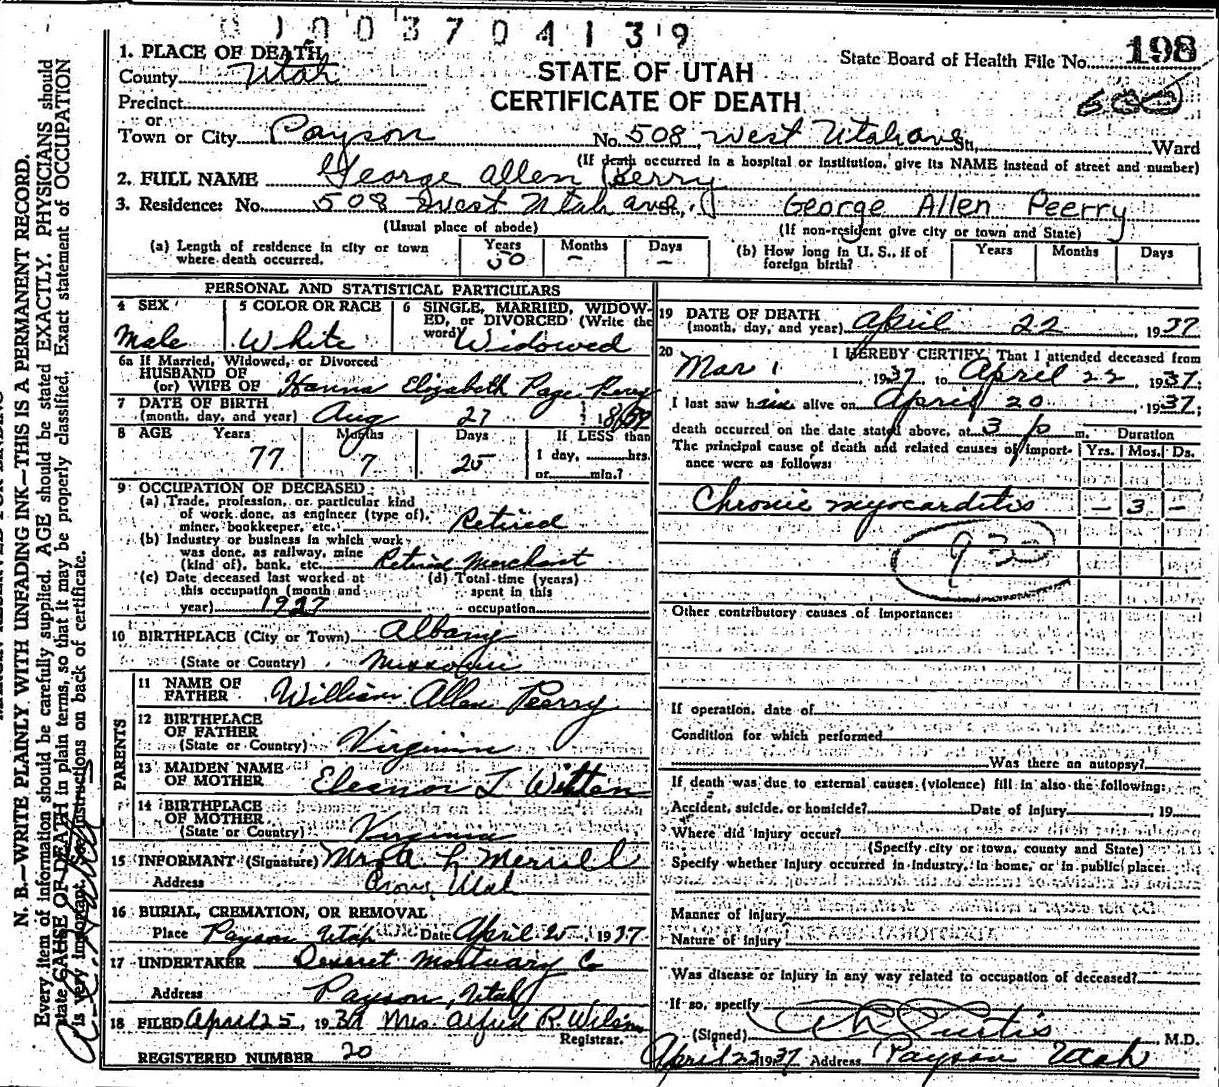 01003704139
1. PLACE OF DEATH
County Utah
STATE OF UTAH
State Board of Health File No. 198
Precinct
CERTIFICATE OF DEATH
or
Town or City Payson No. 508 West Utah ave St., Ward
(If death occurred in a hospital or institution, give its NAME instead of street and number)
2. FULL NAME George Allen Perry
3. Residence: No. 508 West Utah ave St., George Allen Peerry
(Usual place of abode) (If non-resident give city or town and State)
(a) Length of residence in city or town where death occurred. Years 50 Months – Days –
(b) How long in U. S., if of foreign birth? Years Months Days
PERSONAL AND STATISTICAL PARTICULARS
4 SEX Male
5 COLOR OR RACE White
6 SINGLE, MARRIED, WIDOWED, or DIVORCED (Write the word) Widowed
6a If Married, Widowed, or Divorced
HUSBAND OF
(or) WIFE OF Hanna Elizabeth Page Perry
7 DATE OF BIRTH
(month, day, and year) Aug 27 1859
8 AGE Years 77 Months 7 Days 25 If LESS than
1 day, hrs.
or min.?
9 OCCUPATION OF DECEASED:
(a) Trade, profession, or particular kind
of work done, as engineer (type of),
miner, bookkeeper, etc. Retired
(b) Industry or business in which work
was done, as railway, mine
(kind of), bank, etc. Retired Merchant
(c) Date deceased last worked at
this occupation (month and
year) 1927
(d) Total time (years)
spent in this
occupation
10 BIRTHPLACE (City or Town) Albany
(State or Country) Missouri
PARENTS
11 NAME OF
FATHER William Allen Peerry
12 BIRTHPLACE
OF FATHER
(State or Country) Virginia
13 MAIDEN NAME
OF MOTHER Eleanor L Witten
14 BIRTHPLACE
OF MOTHER
(State or Country) Virginia
15 INFORMANT (Signature) Mrs A L Merrill
Address Provo, Utah
16 BURIAL, CREMATION, OR REMOVAL
Place Payson Utah Date April 25, 1937
17 UNDERTAKER Deseret Mortuary Co
Address Payson, Utah
18 FILED April 25, 1937 Mrs. Alfred R. Wilson
Registrar.
REGISTERED NUMBER 20
19 DATE OF DEATH
(month, day, and year) April 22 1937
20 I HEREBY CERTIFY, That I attended deceased from
Mar 1, 1937, to April 22, 1937;
I last saw him alive on April 20 1937;
death occurred on the date stated above, at 3 p m.
Duration
The principal cause of death and related causes of importance were as follows:
Yrs. Mos. Ds.
Chronic myocarditis – 3 –
Other contributory causes of importance:
If operation, date of
Condition for which performed
Was there an autopsy?
If death was due to external causes (violence) fill in also the following:
Accident, suicide, or homicide? Date of injury , 19
Where did injury occur?
(Specify city or town, county and State)
Specify whether injury occurred in industry, in home, or in public place:
Manner of injury
Nature of injury
Was disease or injury in any way related to occupation of deceased?
If so, specify
(Signed) Curtis M.D.
April 23 1937 Address Payson Utah
N. B.—WRITE PLAINLY WITH UNFADING INK—THIS IS A PERMANENT RECORD.
Every item of information should be carefully supplied. AGE should be stated EXACTLY. PHYSICIANS should
state CAUSE OF DEATH in plain terms, so that it may be properly classified. Exact statement of OCCUPATION
is very important. See instructions on back of certificate.